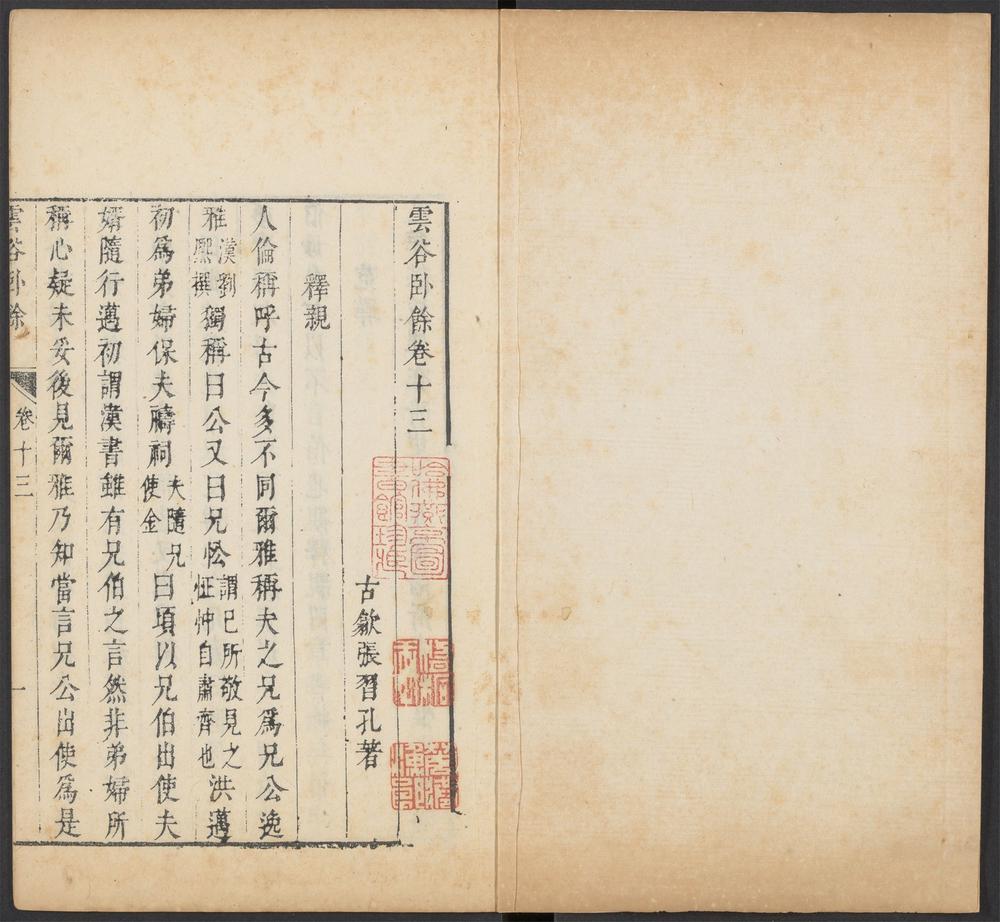 雲谷卧餘卷十三
古歙張習孔著
釋親
人倫稱呼古今多不同爾雅稱夫之兄爲兄公逸
雅漢劉熙撰獨稱曰公又曰兄忪謂已所敬見之怔忡自肅齊也洪邁
初爲弟婦保夫禱祠夫隨兄使金曰頃以兄伯出使夫
婿隨行邁初謂漢書雖有兄伯之言然非弟婦所
稱心疑未妥後見爾雅乃知當言兄公出使爲是
雲谷卧餘
卷十三
一
哈佛燕京圖書館珍藏